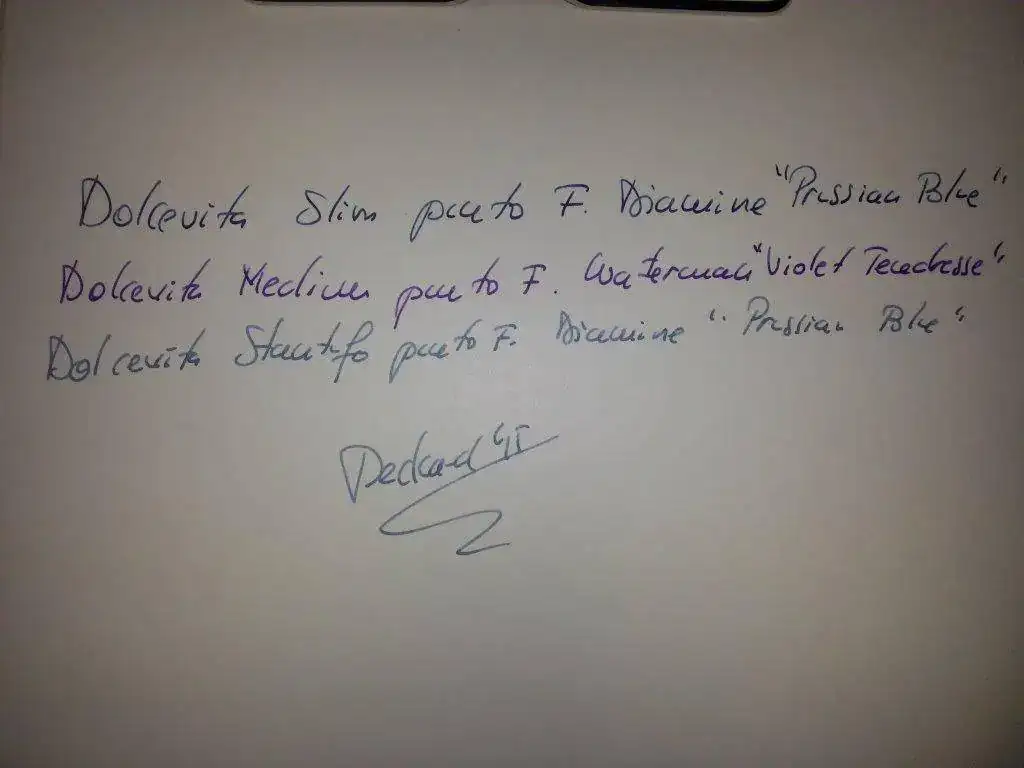 Dolcevita Slim punto F. Diamine "Prussian Blue"
Dolcevita Medium punto F. Waterman "Violet Tendresse"
Dolcevita Stantufo punto F. Diamine "Prussian Blue"
Deckard